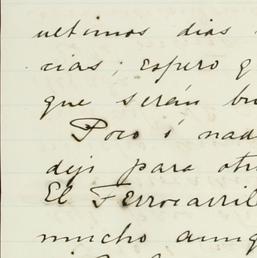 ultimos dias
cias; espero q
que serán bu
Poco ó nad
dejo para otr
El Ferrocarril
mucho aunq